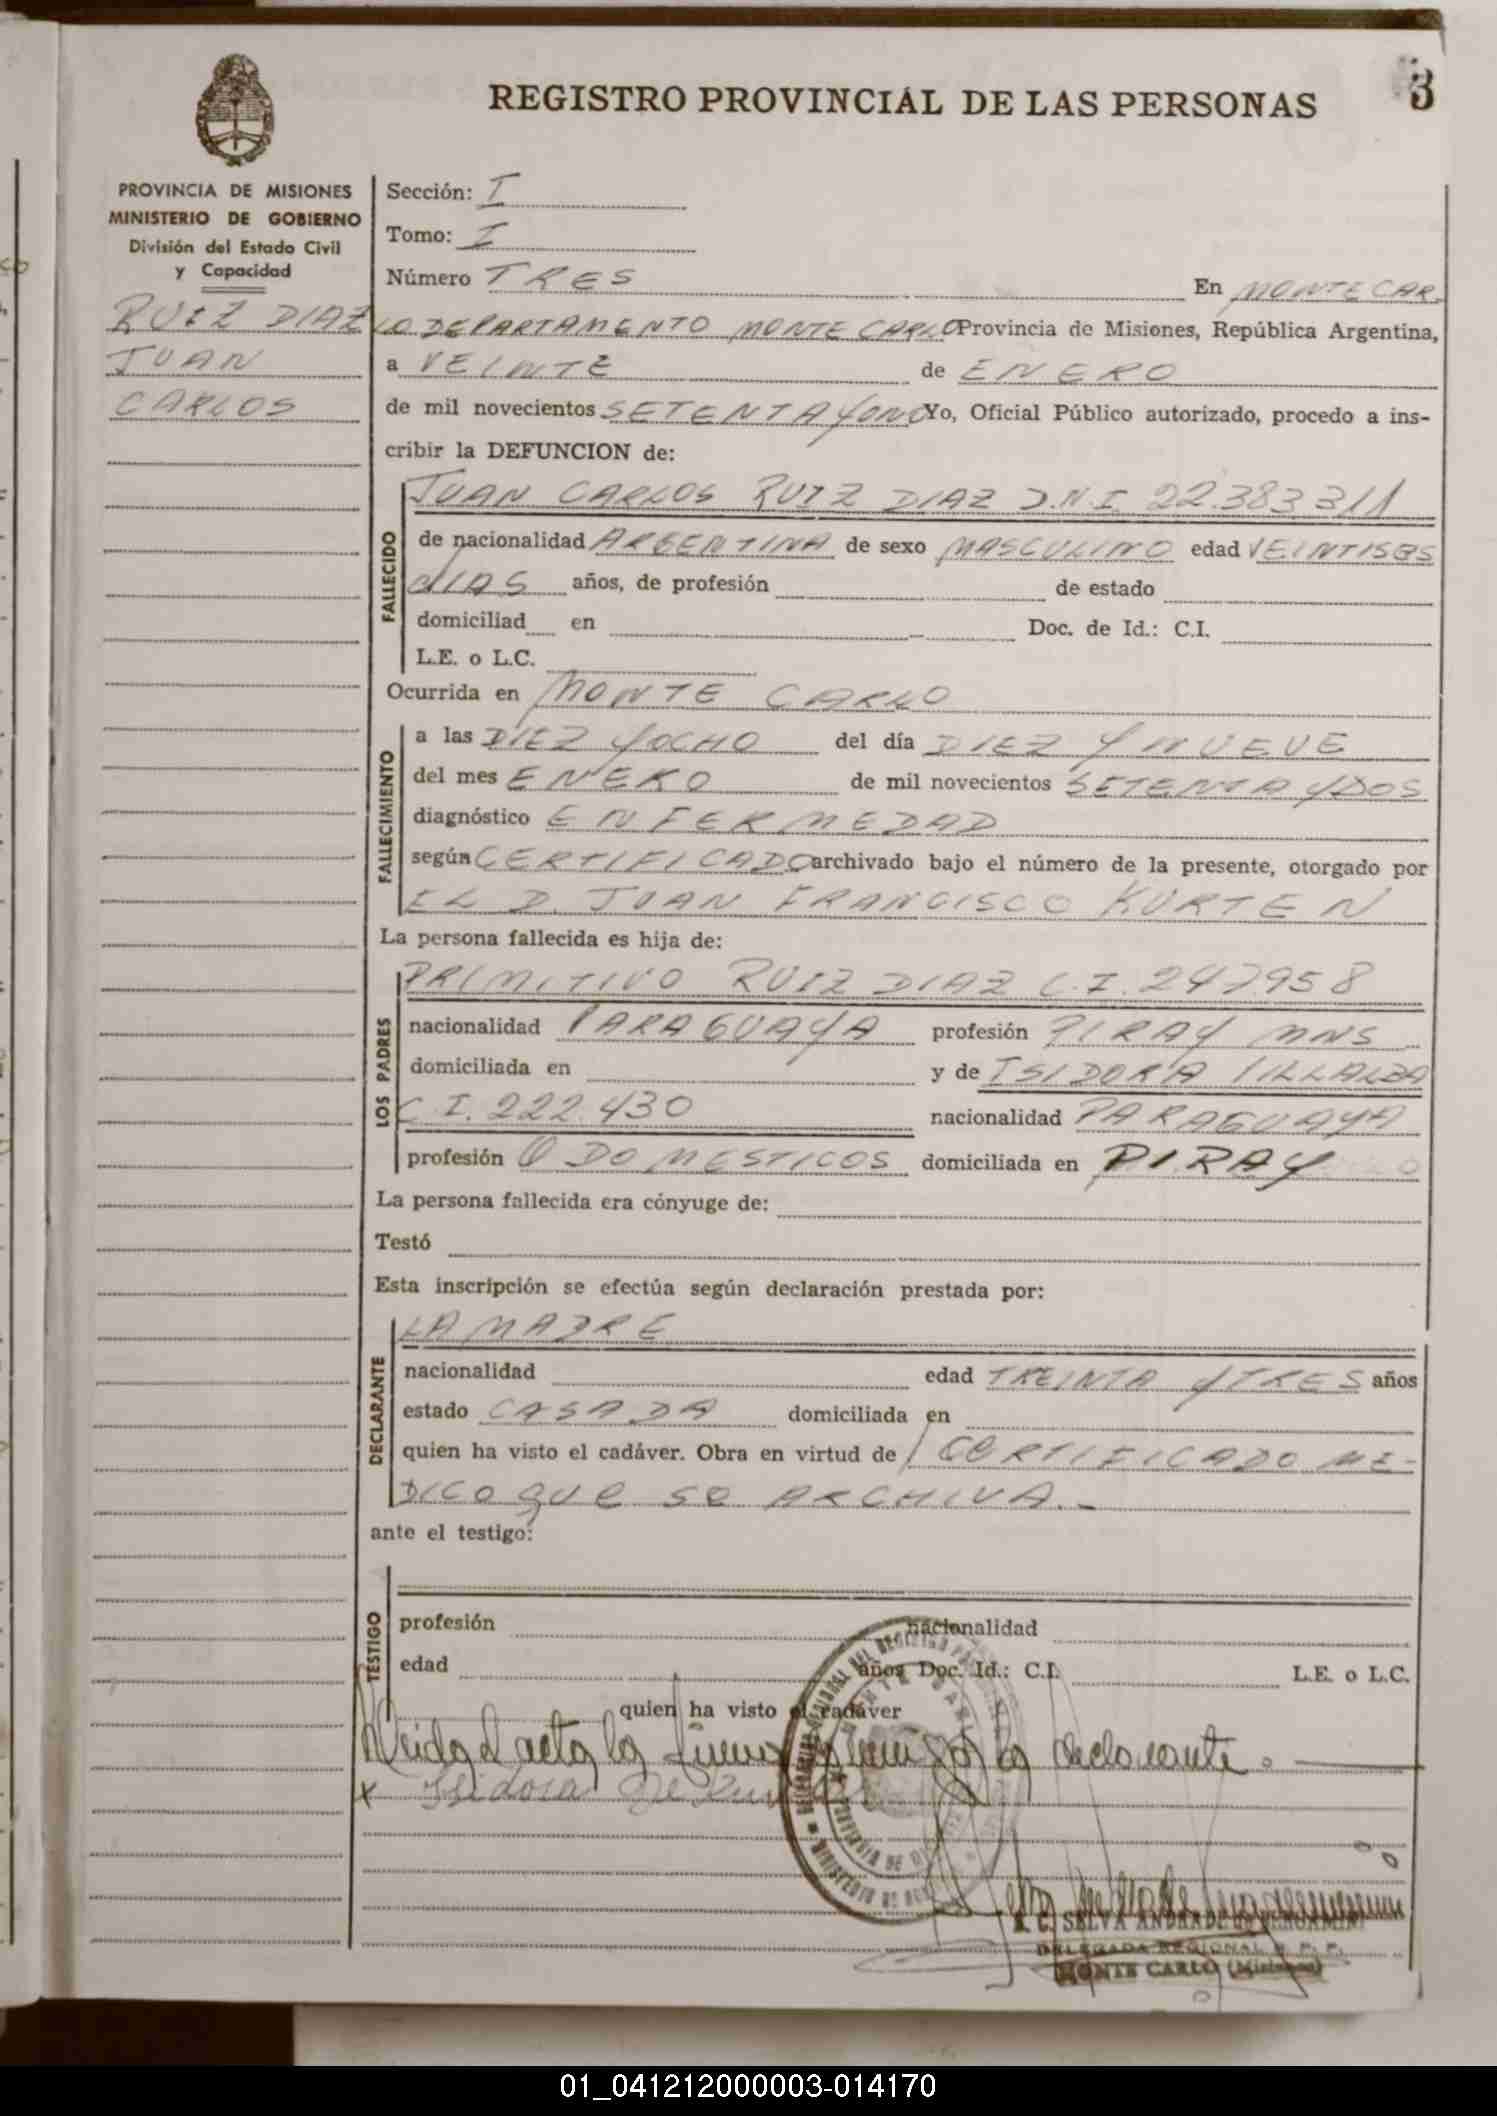 3
REGISTRO PROVINCIAL DE LAS PERSONAS
PROVINCIA DE MISIONES
MINISTERIO DE GOBIERNO
División del Estado Civil
y Capacidad
RUIZ DIAZ
JUAN
CARLOS
Sección: I
Tomo: I
Número TRES En MONTE CAR.
LO DEPARTAMENTO MONTE CARLO Provincia de Misiones, República Argentina,
a VEINTE de ENERO
de mil novecientos SETENTA Yo, Oficial Público autorizado, procedo a ins-
cribir la DEFUNCION de:
FALLECIDO
JUAN CARLOS RUIZ DIAZ D.N.I. 22.383.311
de nacionalidad ARGENTINA de sexo MASCULINO edad
DIAS años, de profesión de estado
domiciliad en Doc. de Id.: C.I.
L.E. o L.C.
Ocurrida en MONTE CARLO
FALLECIMIENTO
a las DIEZ YOCHO del día DIEZ Y NUEVE
del mes ENERO de mil novecientos SETENTA YDOS
diagnóstico ENFERMEDAD
según CERTIFICADO archivado bajo el número de la presente, otorgado por
EL D. JUAN FRANCISCO KURTEN
La persona fallecida es hija de:
LOS PADRES
PRIMITIVO RUIZ DIAZ C.I. 247958
nacionalidad PARAGUAYA profesión PIRAY MNS
domiciliada en y de ISIDORA VILLALBA
C.I. 222.430 nacionalidad PARAGUAYA
profesión Q DOMESTICOS domiciliada en PIRAY
La persona fallecida era cónyuge de:
Testó
Esta inscripción se efectúa según declaración prestada por:
DECLARANTE
LA MADRE
nacionalidad edad TREINTA YTRES años
estado CASADA domiciliada en
quien ha visto el cadáver. Obra en virtud de CERTIFICADO ME-
DICO que se ARCHIVA.-
ante el testigo:
TESTIGO
profesión nacionalidad
edad años Doc. Id.: C.I. L.E. o L.C.
quien ha visto el cadáver
Leida el acta la firma por la declarante.
x Isidora de
DELEGADA REGIONAL R. P. P.
MONTE CARLO (Misiones)
01_041212000003-014170